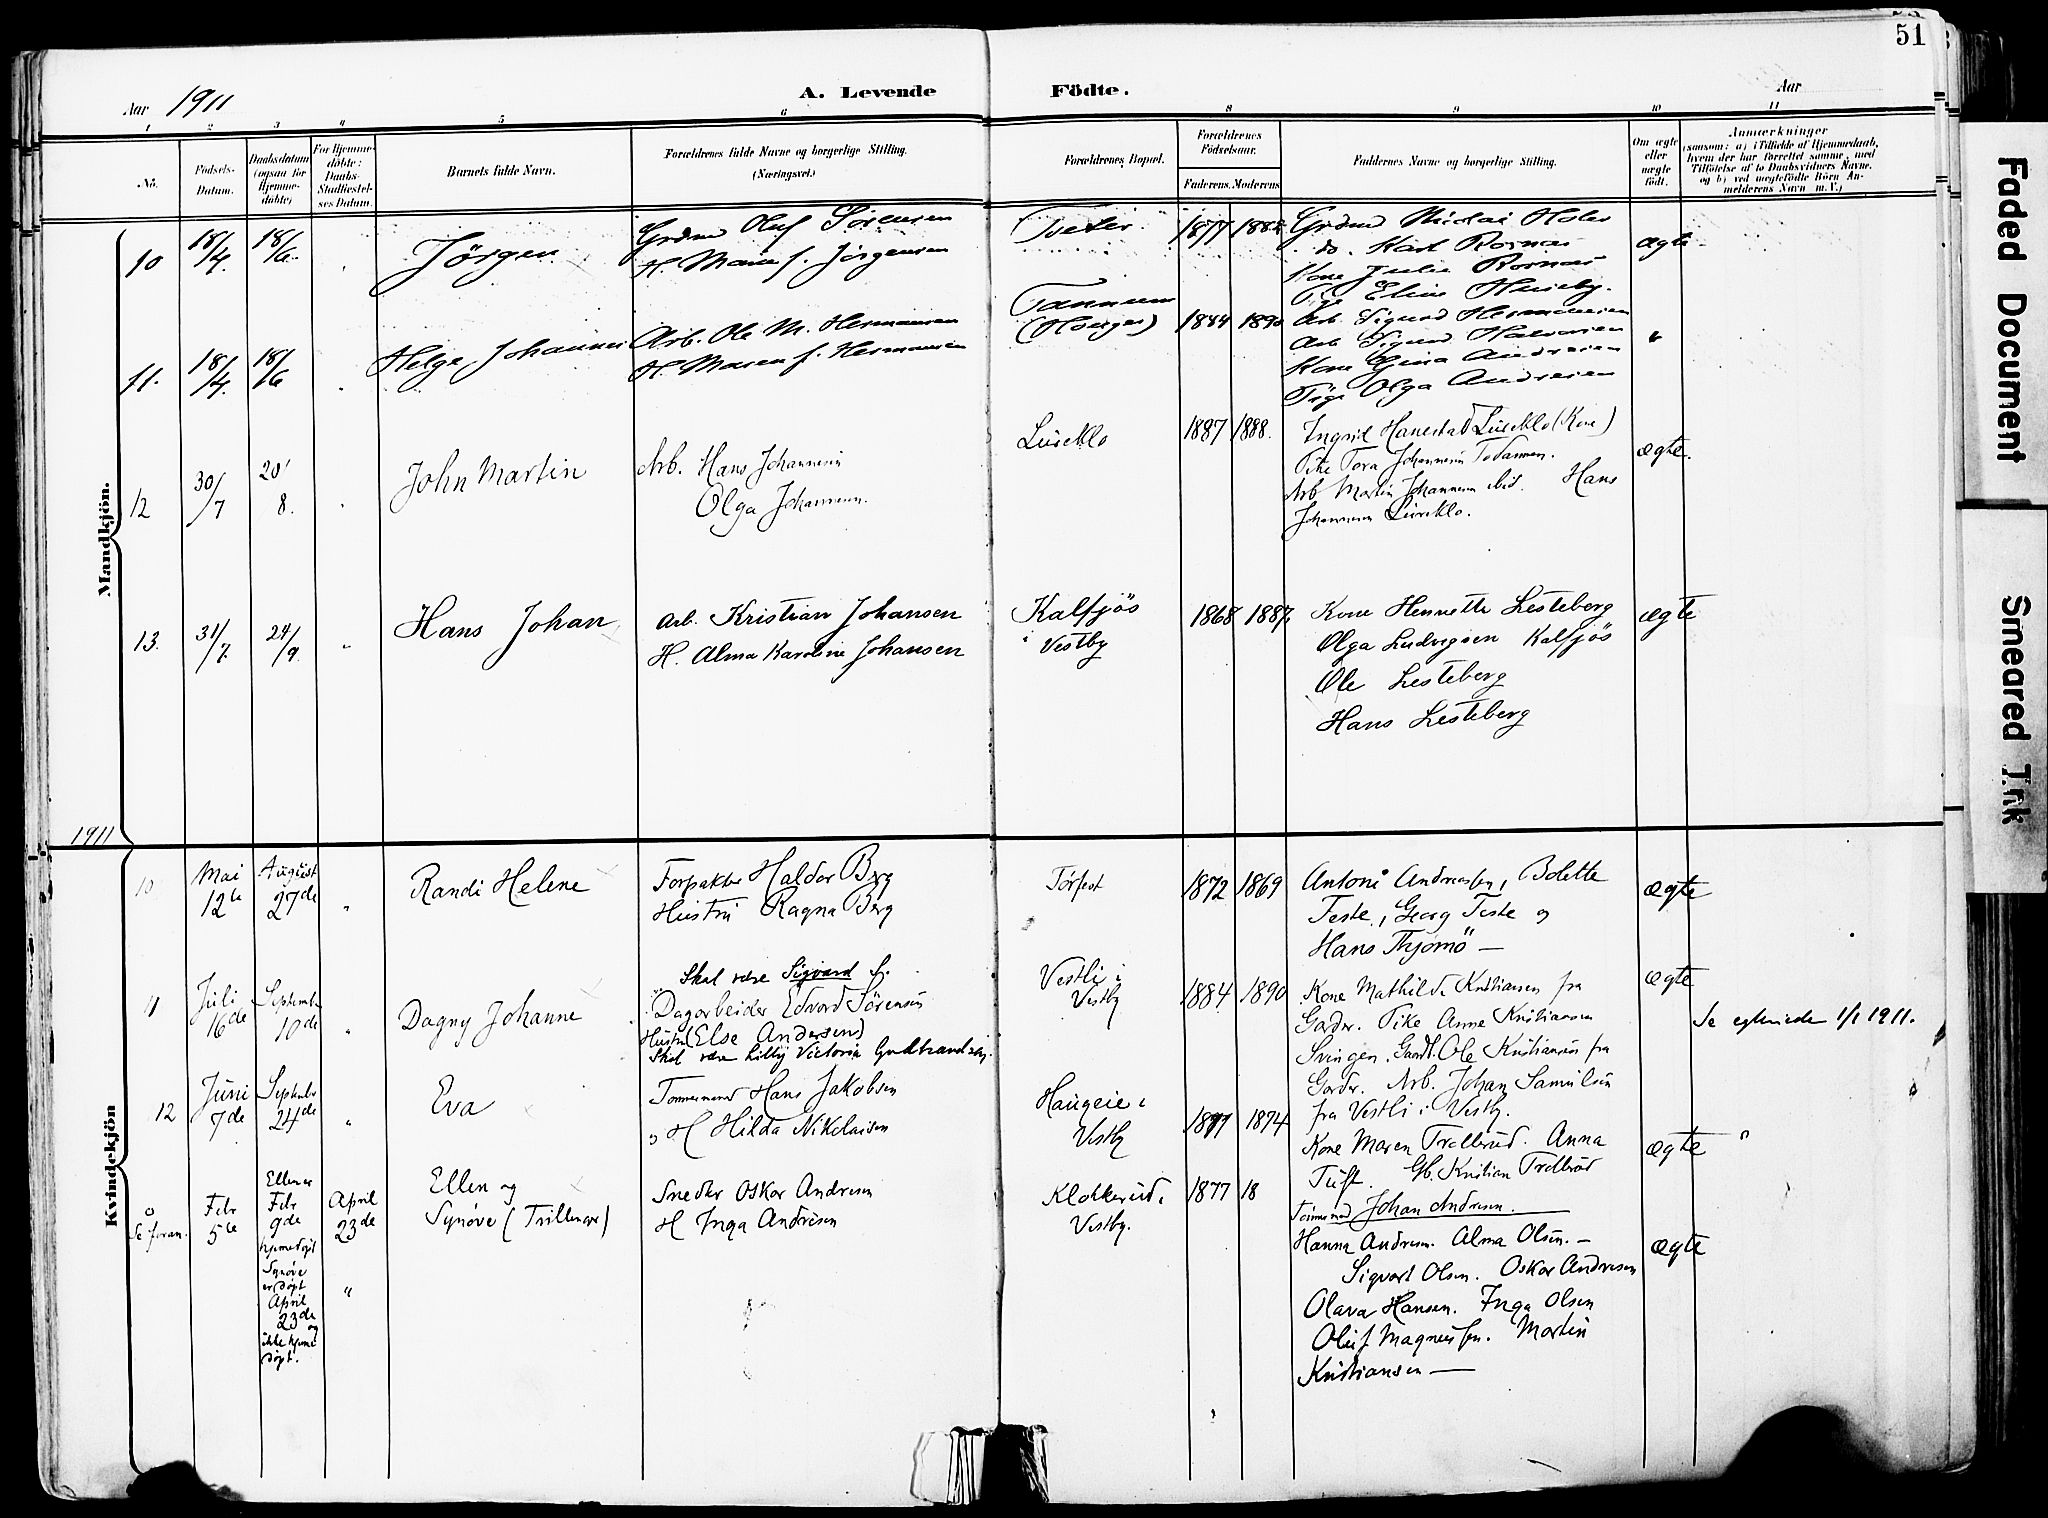 51
Aar 1911
A. Levende Födte.
Aar
1 2 3 4 5 6 8 9 10 11
No.
Födsels-Datum.
Daabsdatum (ogsaa for Hjemme-döbte)
For Hjemme-döbte: Daabs-Stadfæstel-ses Datum.
Barnets fulde Navn.
Forældrenes fulde Navne og borgerlige Stilling. (Næringsvei.)
Forældrenes Bopæl.
Forældrenes Födselsaar.
Faderens. Moderens
Faddernes Navne og borgerlige Stilling.
Om ægte eller uægte födt.
Anmærkninger
(saasom: a) i Tilfælde af Hjemmedaab, hvem der har forrettet samme, med Tilföielse af to Daabsvidners Navne. og b) ved uægtefödte Börn An-melderens Navn m. V.)
Mandkjön.
10 18/4. 18/6. Jörgen
Grdmd Oluf Sørensen
H. Maren f. Jörgensen
Tveter. 1877 1882
Grdmd Nicolai Holer
do. Karl Rornæs
Kone Julie Rornæs
Pige Eline Huseby.
ægte
11. 18/4. 18/6 Helge Johannes
Arb. Ole M. Hermansen
H. Maren f. Hermansen
Tannum
(Hauger) 1884 1890
Arb. Sigurd Hermansen
Arb Sigurd Halvorsen
Kone Gina Andresen
Pige Olga Andresen
"
12 30/7 20/8. John Martin
Arb. Hans Johannesen
Olga Johannesen.
Lüseklo 1887 1888.
Ingrid Hanestad Lüseklo (Kone)
Pike Tora Johannesen
Arb Martin Johannesen ibid. Hans
Johannesen Lüseklo.
ægte.
13. 31/7. 24/9. " Hans Johan
Arb. Kristian Johansen
H. Alma Karoline Johansen
Kalfjös
i Vestby
1868 1887
Kone Hennette Lesteberg
Olga Ludvigsen Kalfjös
Ole Lesteberg
Hans Lesteberg
ægte
1911
Kvindekjön
10 Mai 12te August 27de " Randi Helene
Forpakter Haldor Berg
Hustru Ragna Berg
Törfest 1872 1869
Antoni Andreassen, Bolette
Teste, Georg Teste og
Hans Thjömö —
ægte
11 Juli 16de September 10de " Dagny Johanne
Skal være Sigvard S.
Dagarbeider Edvard Sörensen
Hustru (Else Andersen)
Skal være Lilly Victoria Gudbrandsen.
Vestli i
Vestby 1884 1890
Kone Mathilde Kristiansen fra
Garder. Pike Anne Kristiansen
Svingen. Gaardb. Ole Kristiansen fra
Garder. Arb. Johan Samülsen
fra Vestli i Vestby.
ægte
Se egteviede 1/1 1911.
12 Juni 7de September 24de " Eva
Tømmermand Hans Jakobsen
H Hilda Nikolaisen
Haugeie i
Vestby 1877 1874
Kone Maren Trellerud. Anna
Tuft. Gb. Kristian Trellerud
Tömmermand Johan Andresen.
ægte "
Se foran. Febr 5te
Ellen er
Febr
9de
hjemedöpt
Synöve
er döpt
April
23de
og
ikke hjemedöpt.
April
23de
"
Ellen og
Synöve (Trillinger)
Snedker Oskar Andresen
H Inga Andresen
Klokkerud i
Vestby. 1877 18
Hanna Andresen. Alma Olsen. —
Sigvart Olsen. Oskar Andresen
Olava Hansen. Inga Olsen
Oluf Magnussen. Martin
Kristiansen —
ægte
Faded Document
Smeared Ink